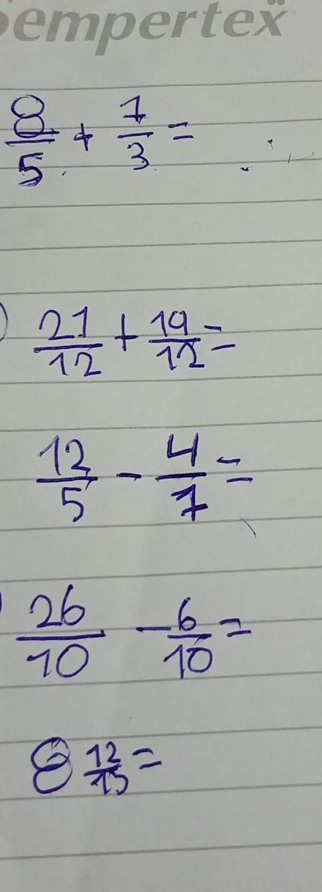 sempertex
8/5 + 7/3 =
) 21/12 + 19/12 =
12/5 - 4/7 =
) 26/10 - 6/10 =
8 12/15 =